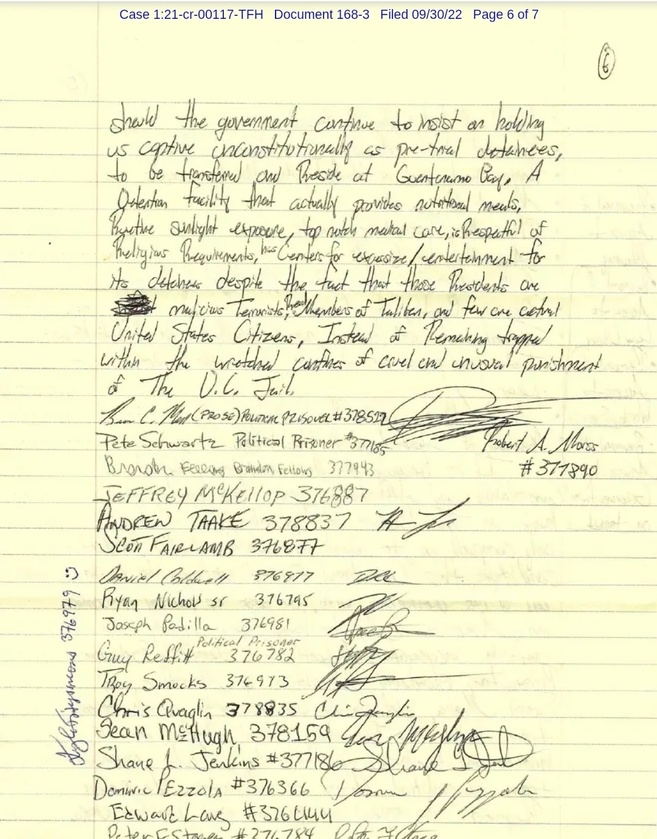 Case 1:21-cr-00117-TFH Document 168-3 Filed 09/30/22 Page 6 of 7
6
should the government continue to insist on holding
us captive unconstitutionally as pre-trial detainees,
to be transferred and Preside at Guantanamo Bay, A
Detention facility that actually provides nutritional meals,
sunlight exposure, top notch medical care, is Respectful of
Religious Requirements, has Centers for excersize/entertainment for
its detainees despite the fact that those Residents are
malicious Terrorists, Real Members of Taliban, and few are actual
United States Citizens, Instead of Remaining trapped
within the wretched confines of cruel and unusual punishment
of The D.C. Jail.
(PRO SE) Political Prisoner #378522
Pete Schwartz Political Prisoner #377185
Robert A. Morss
#377890
Brandon Fellows Brandon Fellows 377943
JEFFREY McKELLOP 376887
ANDREW TAAKE 378837
SCOTT FAIRLAMB 376877
Daniel Caldwell 376977
Ryan Nichols sr 376795
Joseph Padilla 376981
Political Prisoner
Guy Reffitt 376782
Troy Smocks 376973
Chris Quaglin 378835
Sean McHugh 378159
Shane J. Jenkins #377186
Dominic PEZZOLA #376366
Edward Lang
376784
376979